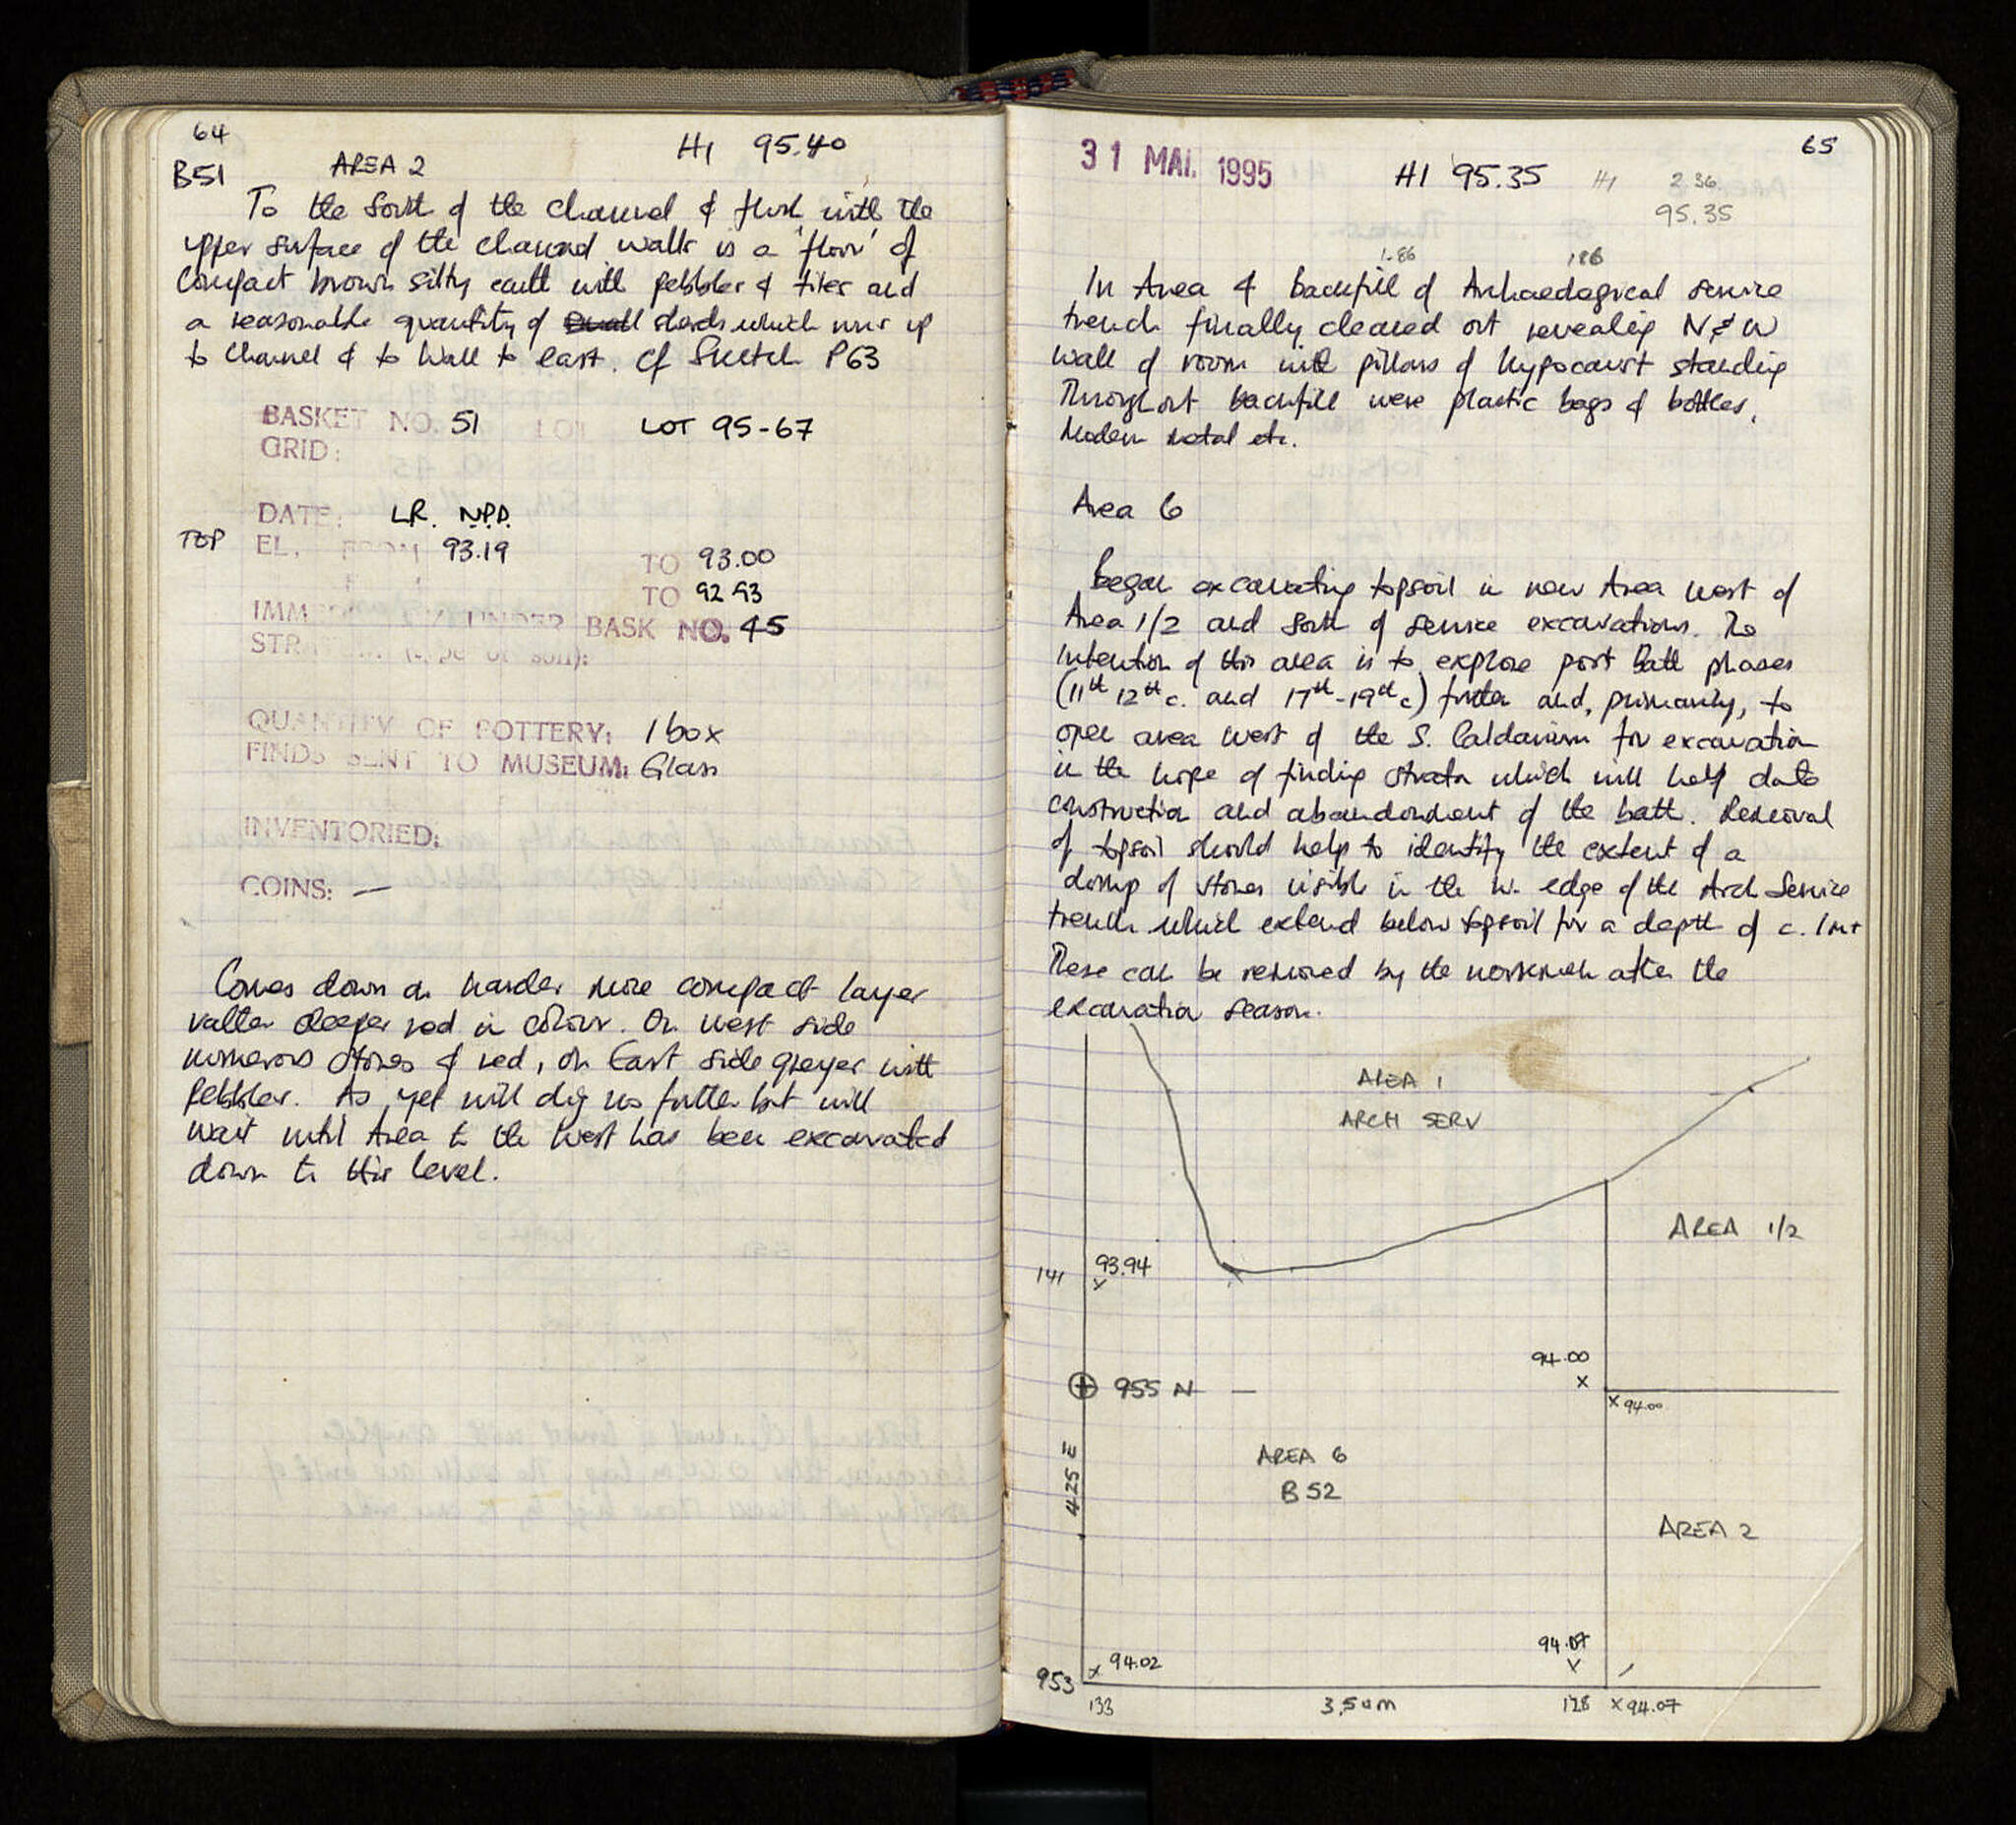 64
B51 AREA 2 HI 95.40
To the South of the channel & flush with the
upper surface of the channel walls is a 'floor' of
compact brown silty earth with pebbles & tiles and
a reasonable quantity of small sherds which runs up
to channel & to wall to east. cf Sketch P63
BASKET NO. 51 LOT LOT 95-67
GRID:
DATE: LR. N.P.D.
TOP EL. FROM 93.19 TO 93.00
TO 92.93
IMMEDIATELY UNDER BASK NO. 45
STRATUM (type of soil):
QUANTITY OF POTTERY: 1 box
FINDS SENT TO MUSEUM: Glass
INVENTORIED:
COINS: —
Comes down on harder more compact layer
rather deeper red in colour. On west side
numerous stones & red, on East side greyer with
pebbles. As yet will dig no further but will
wait until Area to the West has been excavated
down to this level.
65
31 MAI. 1995 HI 95.35 HI 2.36
95.35
1.86 186
In Area & backfill of Archaeological service
trench finally cleared out revealing N & W
wall of room with pillars of hypocaust standing
Throughout backfill were plastic bags & bottles,
Modern metal etc.
Area 6
Began excavating topsoil in new Area west of
Area 1/2 and south of service excavations. The
intention of this area is to explore post Bath phases
(11th 12th c. and 17th-19th c) further and, primarily, to
open area west of the S. Caldarium for excavation
in the hope of finding strata which will help date
construction and abandonment of the bath. Removal
of topsoil should help to identify the extent of a
dump of stones visible in the W. edge of the Arch Service
trench which extend below topsoil for a depth of c. 1mt
These can be removed by the workmen after the
excavation season.
AREA 1
ARCH SERV
AREA 1/2
141 93.94
94.00
955 N
94.00
425 E
AREA 6
B 52
AREA 2
94.07
953 94.02
133 3.50m 128 94.07